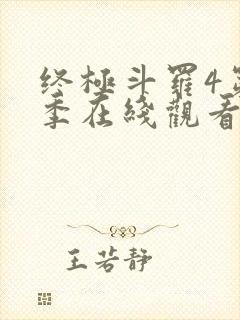 终極斗羅4第
季在綫觀看
王若靜